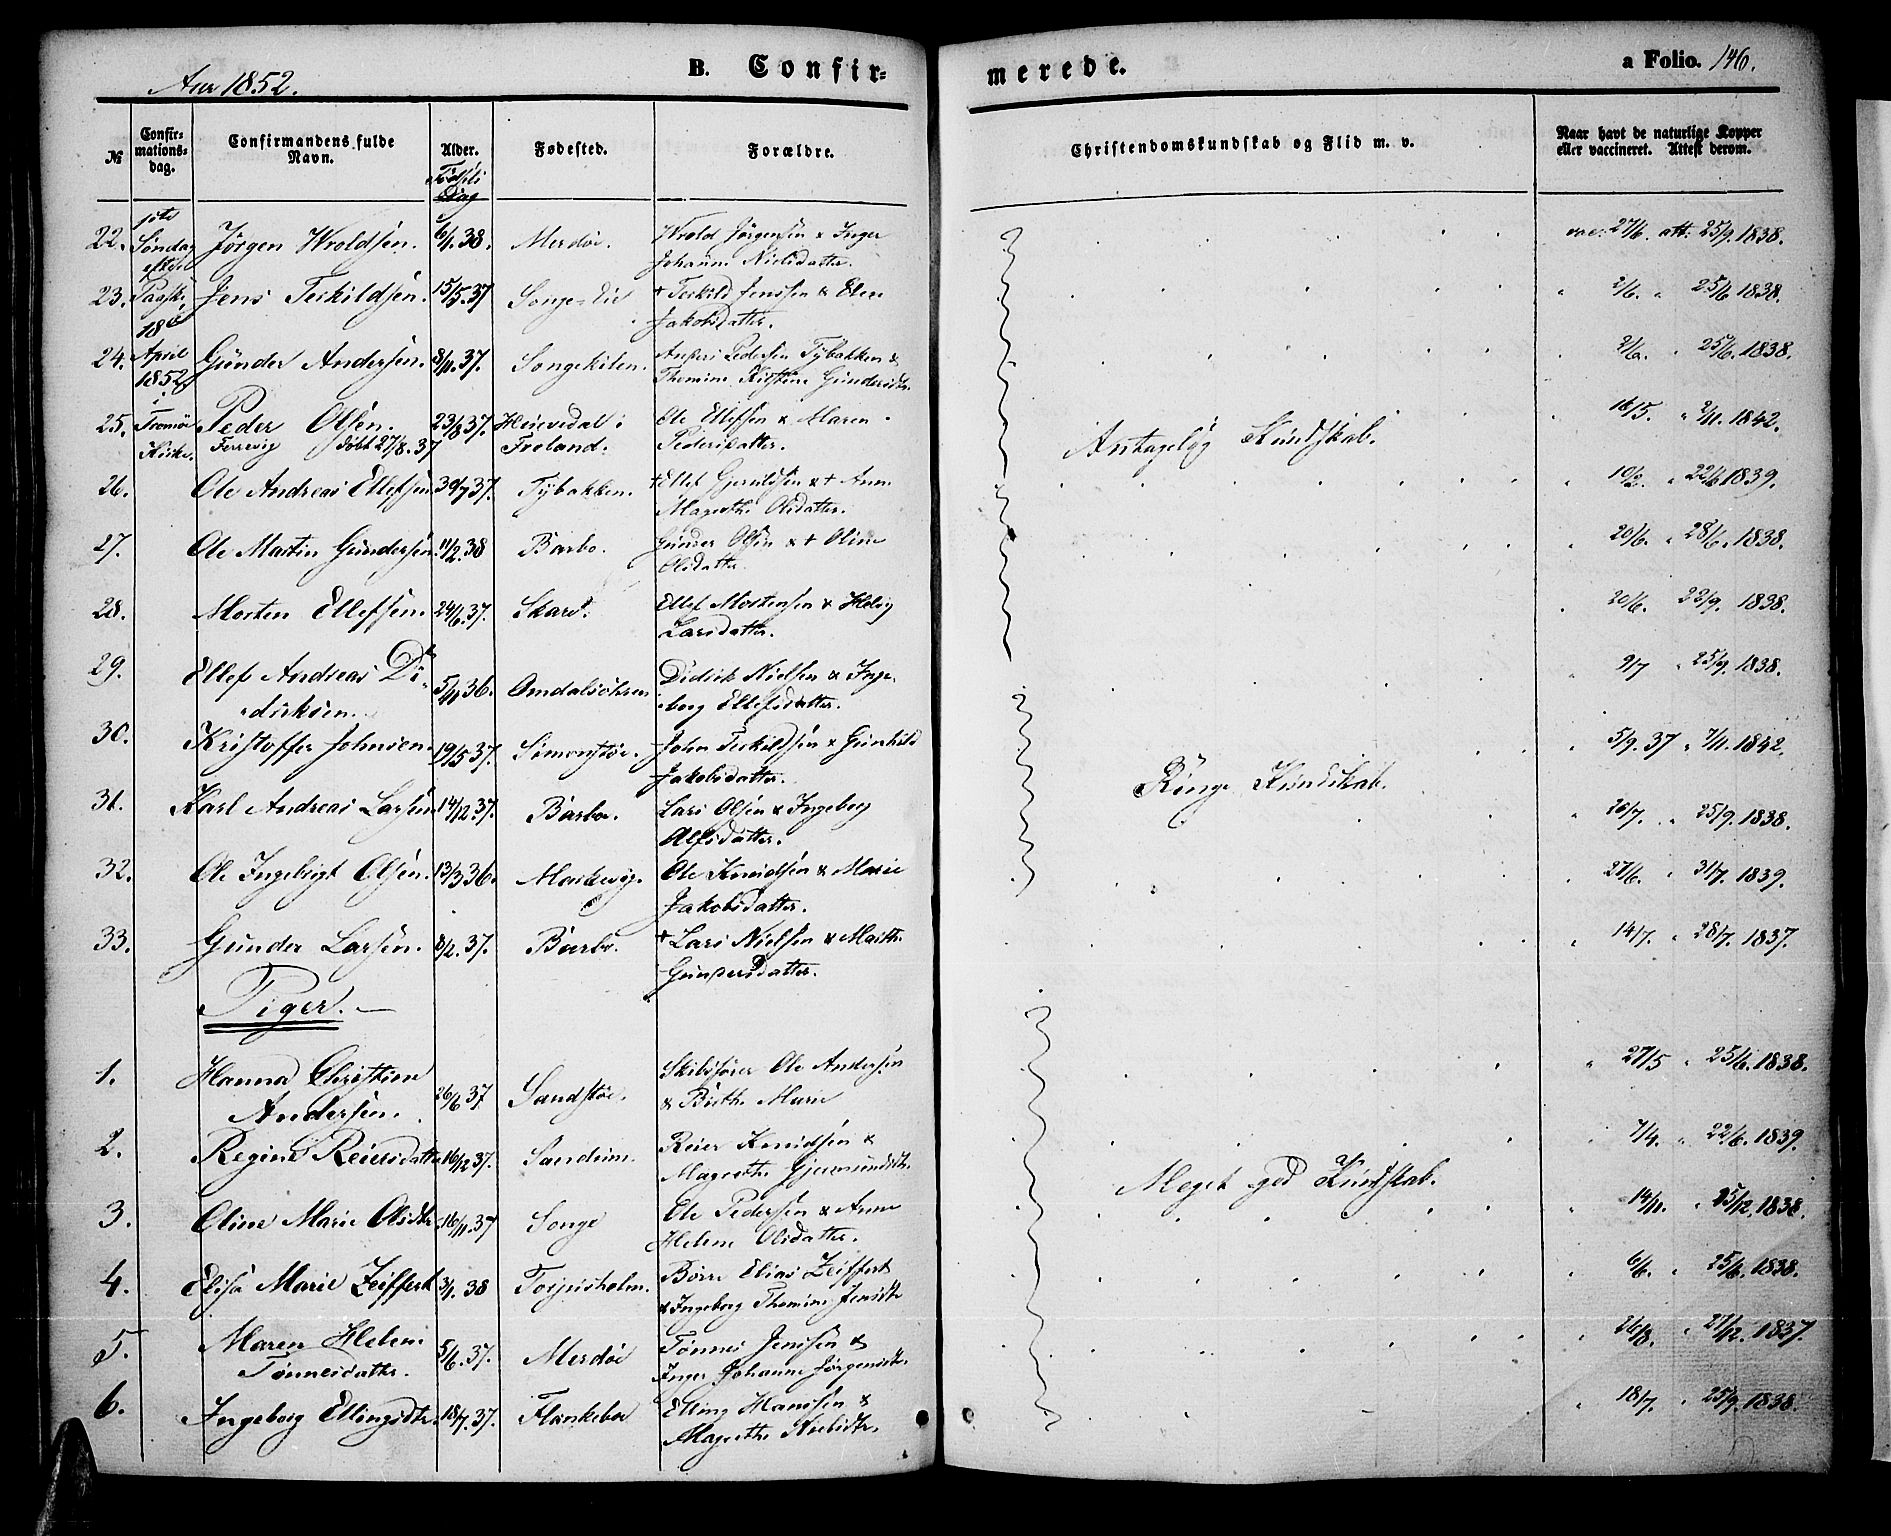 Aar 1852.
B. Confir-
merede.
a Folio. 146.
№
Confir-
mations-
dag.
Confirmandens fulde
Navn.
Alder.
Fødsels
Dag
Fødested.
Forældre.
Christendomskundskab og Flid m. v.
Naar havt de naturlige Kopper
eller vaccineret. Attest derom.
1ste
Søndag
efter
Paaske
18de
April
1852
i
Tromø
Kirke.
22. Jørgen Wroldsen. 6/1.38. Merdøe. Wrold Jørgensen & Inger
Johanne Nielsdatter.
vac: 27/6. att: 25/9.1838.
23. Jens Terkildsen. 15/5.37 Songe-Eie + Terkild Jenssen & Elen
Jakobsdatter.
" 2/6. " 25/6.1838.
24. Gunder Andersen. 8/11.37. Songekilen. Anders Pedersen Tybakken &
Thomine Kirstine Gundersdtr.
2/6. " 25/6.1838.
25. Peder Olsen. 23/8.37. i Ole Ellefsen & Maren
Ferrvig døbt 27/8.37 Froland. Pedersdatter.
Antagelig Kundskab.
" 16/5. " 2/11.1842.
26. Ole Andreas Ellefsen 30/7.37. Tybakken. + Ellef Gjeruldsen & + Anne
Magrethe Olsdatter.
" 10/2. " 22/6.1839.
27. Ole Martin Gundersen. 11/2.38 Barbo. Gunder Olsen & + Oline
Olsdatter.
" 20/6. " 28/6.1838.
28. Morten Ellefsen. 24/6.37. Skare. Ellef Mortensen & Helvig
Larsdatter.
" 20/6. 22/9. 1838.
29. Ellef Andreas Di-
driksen. 5/11.36. Omdalsøhren Didrik Nielsen & Inge-
borg Ellefsdatter.
" 9/7 " 25/9.1838.
30. Kristoffer Johnsen. 19/5.37. Simonstøe. John Terkildsen & Gunhild
Jakobsdatter.
" 5/9.37 " 7/11.1842.
Ringe Kundskab.
31. Karl Andreas Larsen 14/12.37. Barbo. Lars Olsen & Ingeborg
Alfsdatter.
" 26/7. " 25/9.1838.
32. Ole Ingebrigt Olsen. 13/3.36. Markevig. Ole Knudsen & Marie
Jakobsdatter.
" 27/6. " 31/7.1839.
33. Gunder Larsen. 8/2.37. Barbo. + Lars Nielsen & Marthe
Gundersdatter.
" 14/7. " 28/7.1837.
Piger.
1. Hanna Christine
Andersen. 26/6.37 Sandstøe. Skibsfører Ole Andersen
& Birthe Marie
" 27/5 " 25/6.1838.
2. Regine Reiersdatter 16/12.37. Sandum. Reier Knudsen &
Magrethe Gjermundsdtr.
" 7/4. " 22/6.1839.
Meget god Kundskab.
3. Oline Marie Olsdtr. 16/11.37 Songe Ole Pedersen & Anne
Helene Olsdatter.
" 14/11. " 25/12.1838.
4. Elisa Marie Zeiffert 3/1.38 Torjusholm. Børre Elias Zeiffert
& Ingeborg Thomine Jensdtr
" 6/6. " 25/6.1838.
5. Maren Helene
Tønnesdatter. 5/6.37. Merdøe Tønnes Jenssen &
Inger Johanne Jørgensdtr.
" 26/8. " 27/12.1837.
6. Ingeborg Ellingsdtr. 18/7.37. Flankeboe Elling Hanssen &
Magrethe Nielsdtr.
" 18/7. " 25/9.1838.